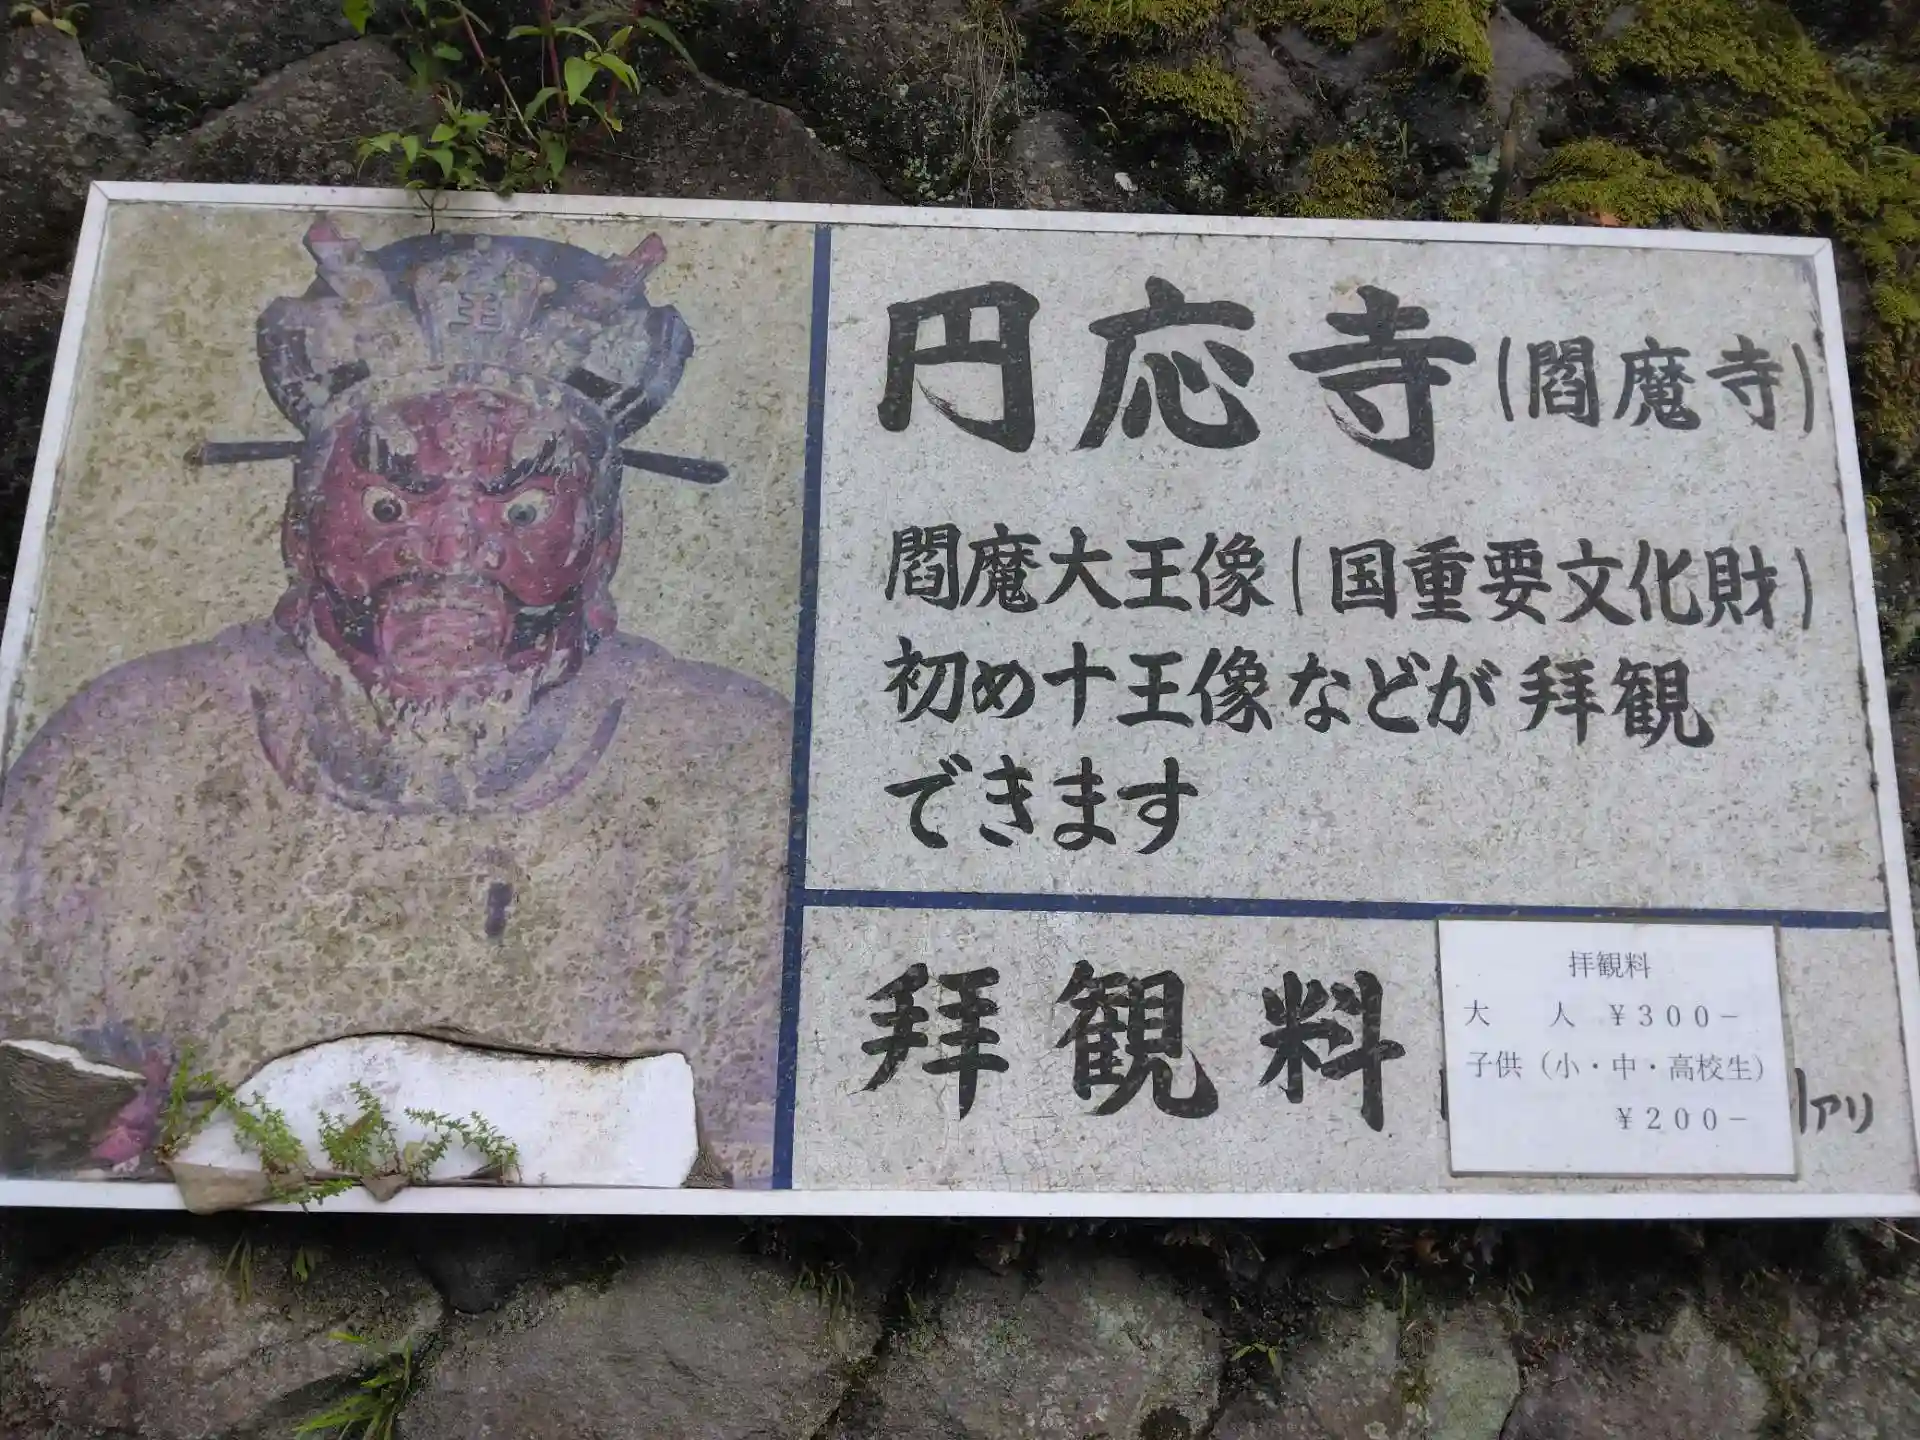 王
円応寺(閻魔寺)
閻魔大王像(国重要文化財)
初め十王像などが拝観
できます
拝観料
拝観料
大　人　￥300－
子供（小・中・高校生）
￥200－
アリ